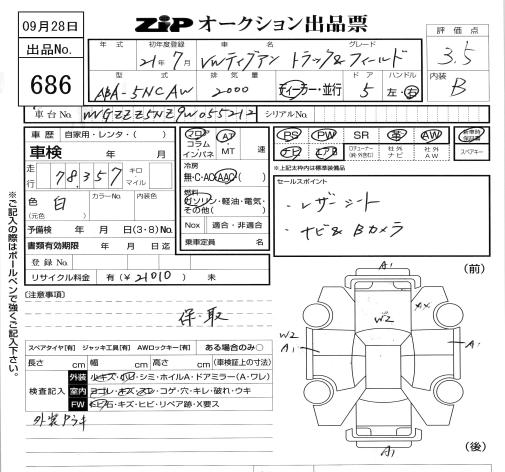 09月28日
ZIP オークション出品票
出品No.
686
評価点
3.5
内装
B
年式 初年度登録 車名 グレード
21年7月 VWティグアン トラック&フィールド
型式 排気量 ドア ハンドル
ABA-5NCAW 2000 ディーラー・並行 5 左・右
車台No. WVGZZZ5NZ9W055212 シリアルNo.
車歴 自家用・レンタ・( )
車検 年 月
走行 78,357 キロ マイル
色 白 カラーNo. 内装色
(元色)
予備検 年 月 日(3・8)No.
書類有効期限 年 月 日迄
登録No.
リサイクル料金 有(¥21010) 未
フロア コラム インパネ AT・MT 速
冷房
無・C・AC・AAC
燃料
ガソリン・軽油・電気・その他( )
Nox 適合・非適合
乗車定員 名
PS PW SR 革 AW 新車時保証書
ナビ エアB 社外ナビ 社外AW スペアキー
※上記太枠内は標準装備品
セールスポイント
・レザーシート
・ナビ&Bカメラ
※ご記入の際はボールペンで強くご記入下さい。
[注意事項]
保・取
スペアタイヤ[有] ジャッキ工具[有] AWロックキー[有] ある場合のみ○
長さ cm 幅 cm 高さ cm (車検証上の寸法)
検査記入
外装 小キズ・小凹・シミ・ホイルA・ドアミラー(A・ワレ)
室内 ヨゴレ・キズ・スレ・コゲ・穴・キレ・破れ・ウキ
FW トビ石・キズ・ヒビ・リペア跡・X要ス
(前)
A1
XX
W2
W2
A1
A1
A1
(後)